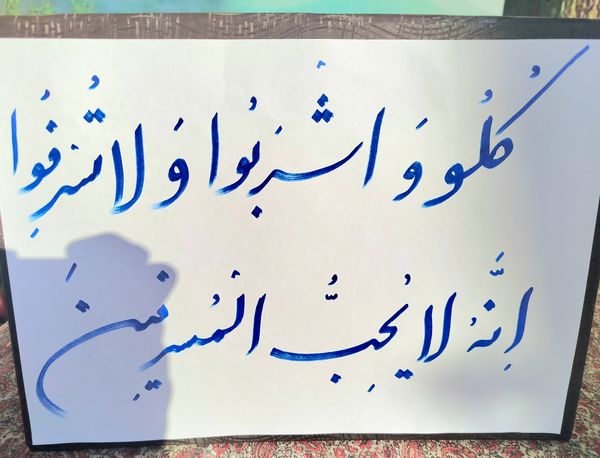 کُلُو وَ اشْرَبُوا وَ لا تُسْرِفُوا
اِنَّهُ لا یُحِبُّ المُسرِفینَ